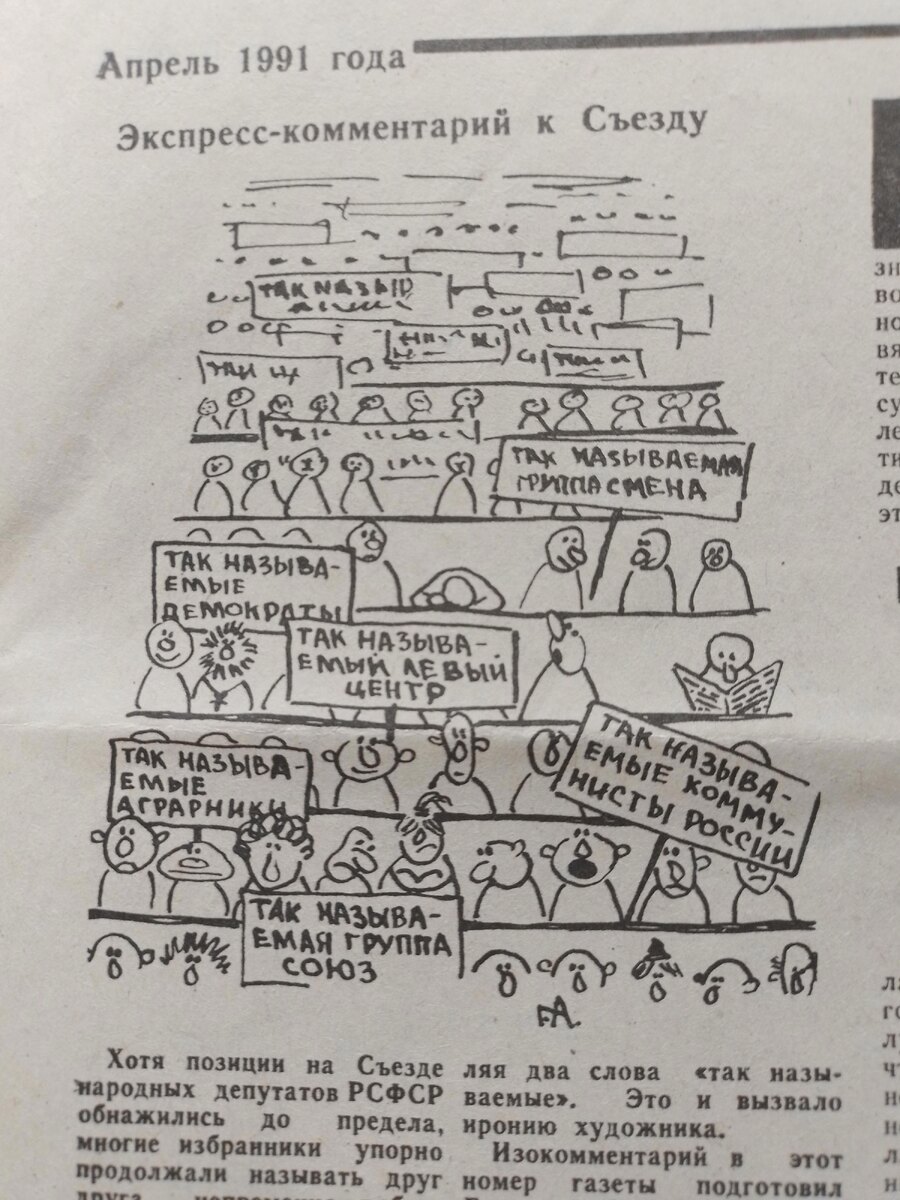 Апрель 1991 года
Экспресс-комментарий к Съезду
ТАК НАЗЫВ
ТАК НАЗЫВАЕМАЯ
ГРУППА СМЕНА
ТАК НАЗЫВА-
ЕМЫЕ
ДЕМОКРАТЫ
ТАК НАЗЫВА-
ЕМЫЙ ЛЕВЫЙ
ЦЕНТР
ТАК НАЗЫВА-
ЕМЫЕ КОММУ-
НИСТЫ РОССИИ
ТАК НАЗЫВА-
ЕМЫЕ
АГРАРНИКИ
ТАК НАЗЫВА-
ЕМАЯ ГРУППА
СОЮЗ
Хотя позиции на Съезде
народных депутатов РСФСР
обнажились до предела,
многие избранники упорно
продолжали называть друг
ляя два слова «так назы-
ваемые». Это и вызвало
иронию художника.
Изокомментарий в этот
номер газеты подготовил